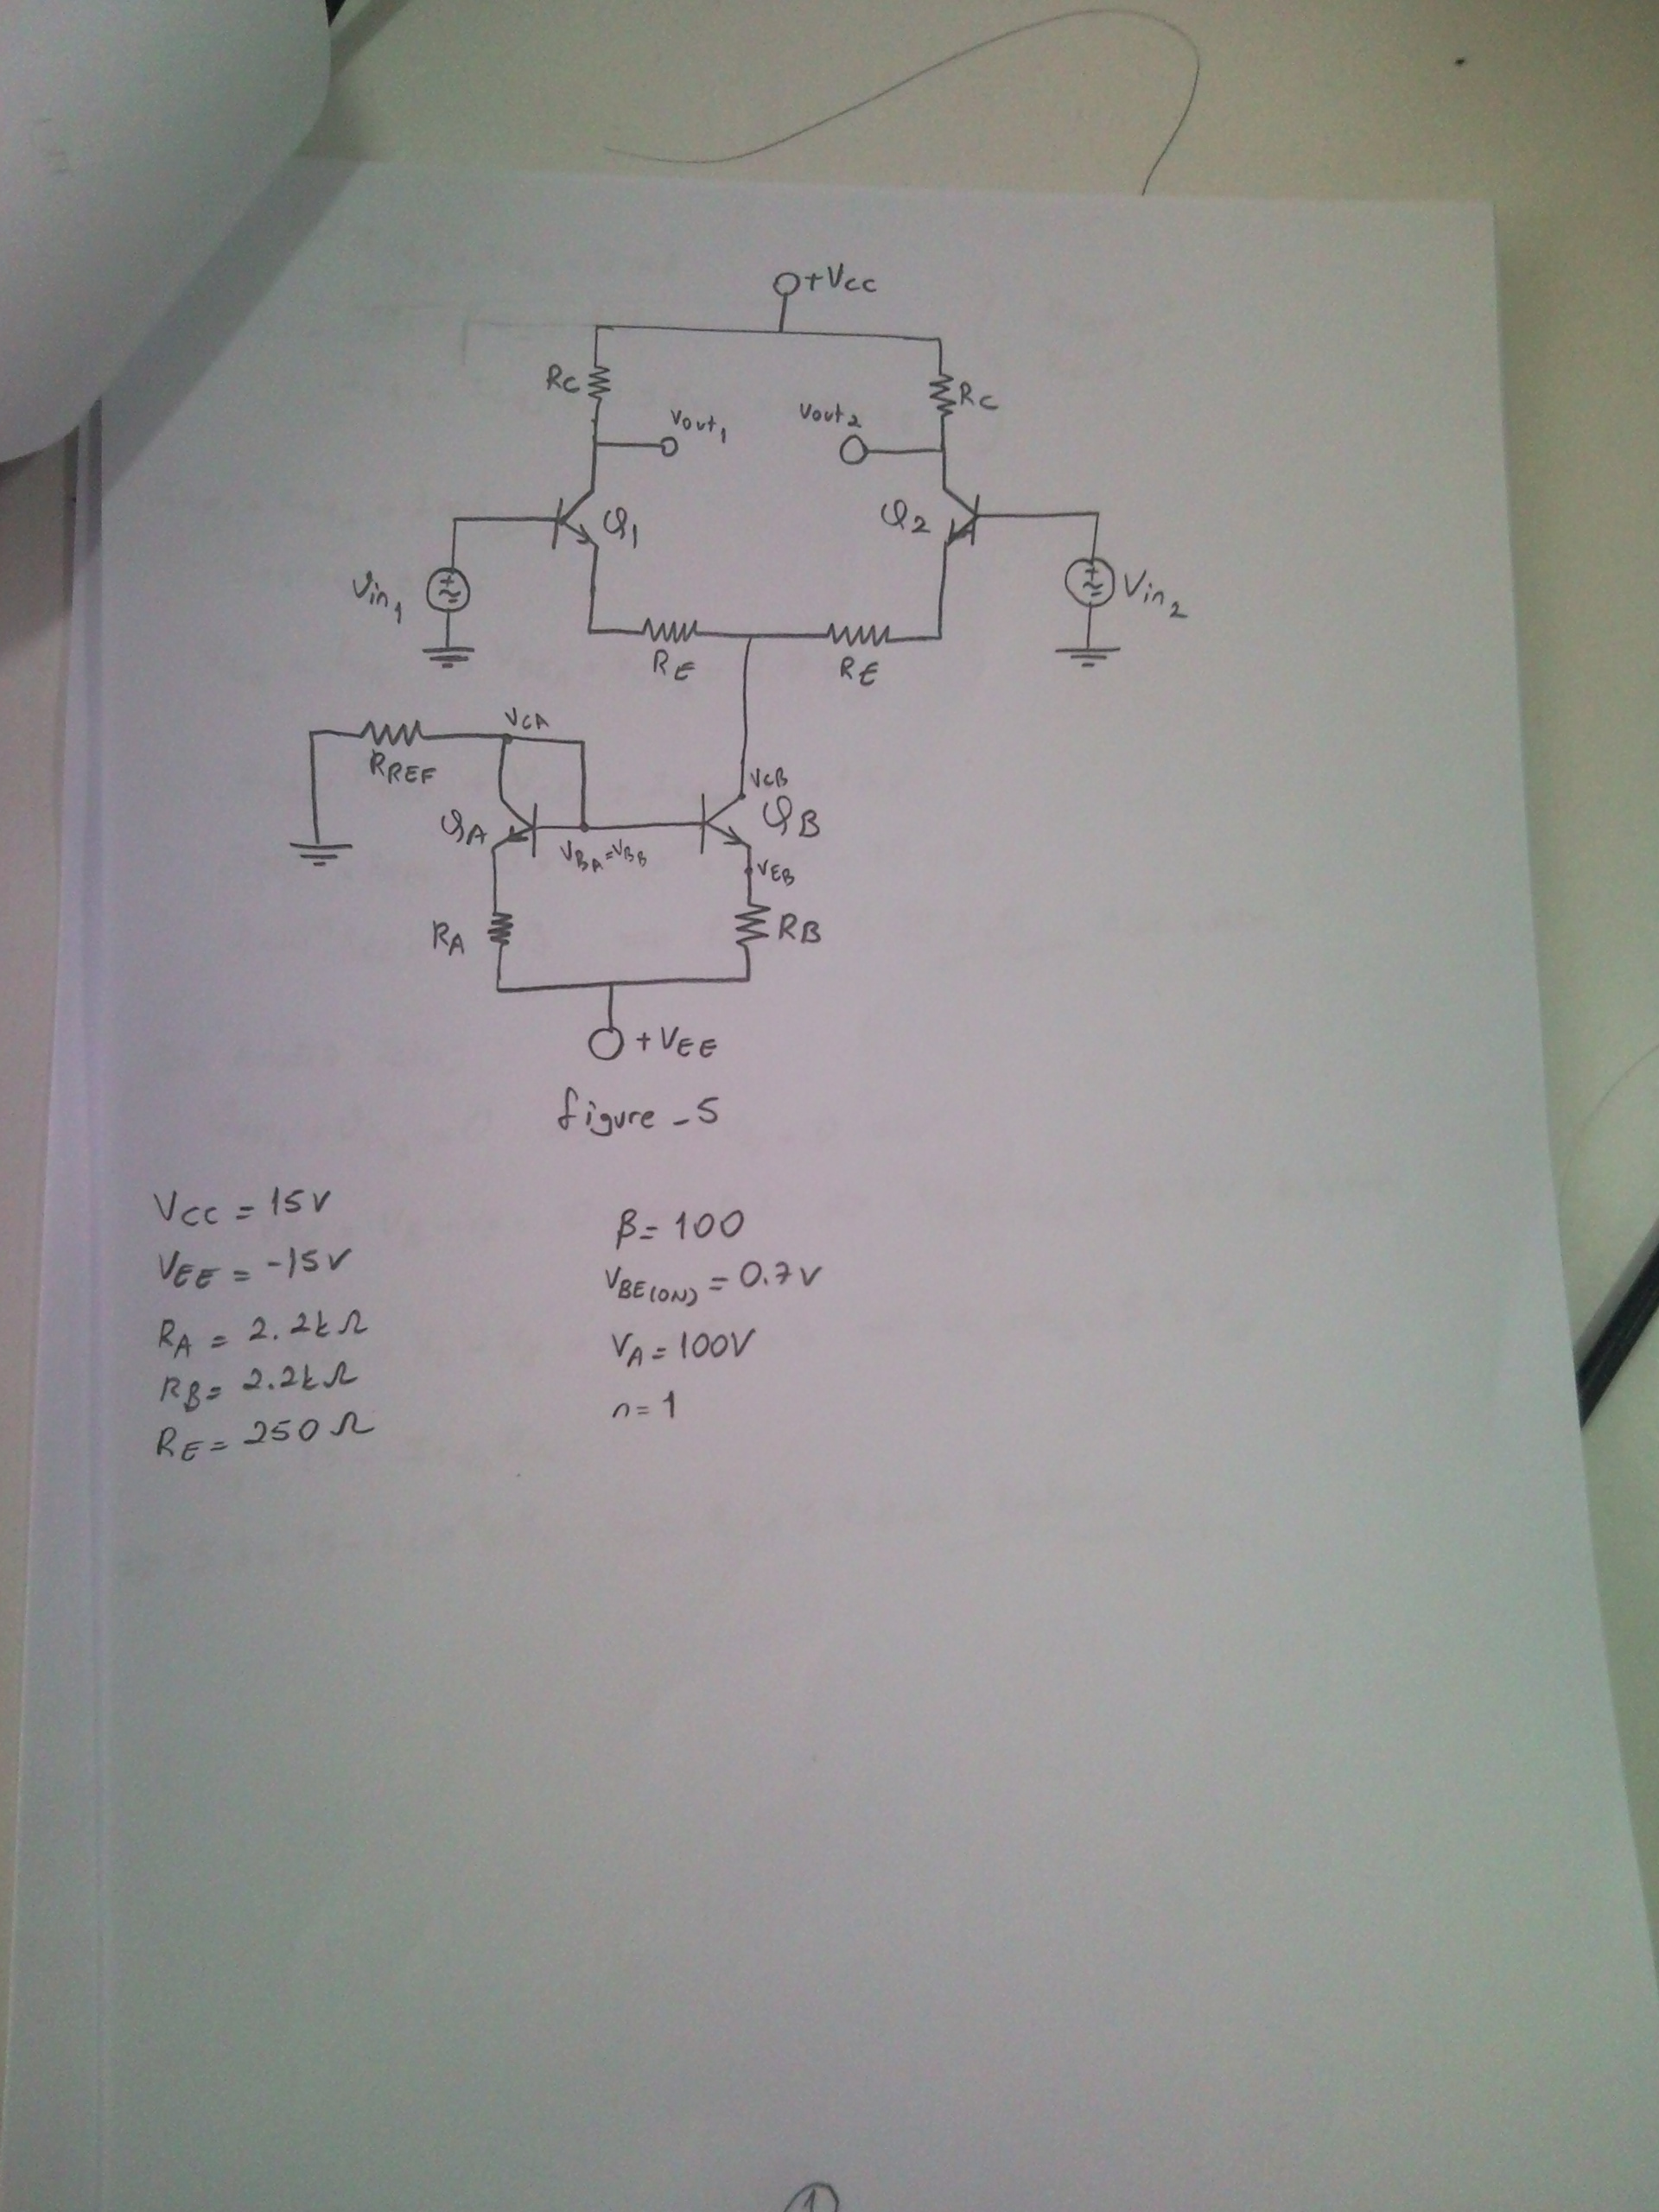 +Vcc
Rc
Rc
Vout1
Vout2
Q1
Q2
Vin1
Vin2
RE
RE
VCA
RREF
VCB
QA
QB
VBA=VBB
VEB
RA
RB
+VEE
figure-5
VCC = 15V
VEE = -15V
RA = 2.2kΩ
RB= 2.2kΩ
RE= 250Ω
β= 100
VBE(ON) = 0.7V
VA = 100V
n= 1
1